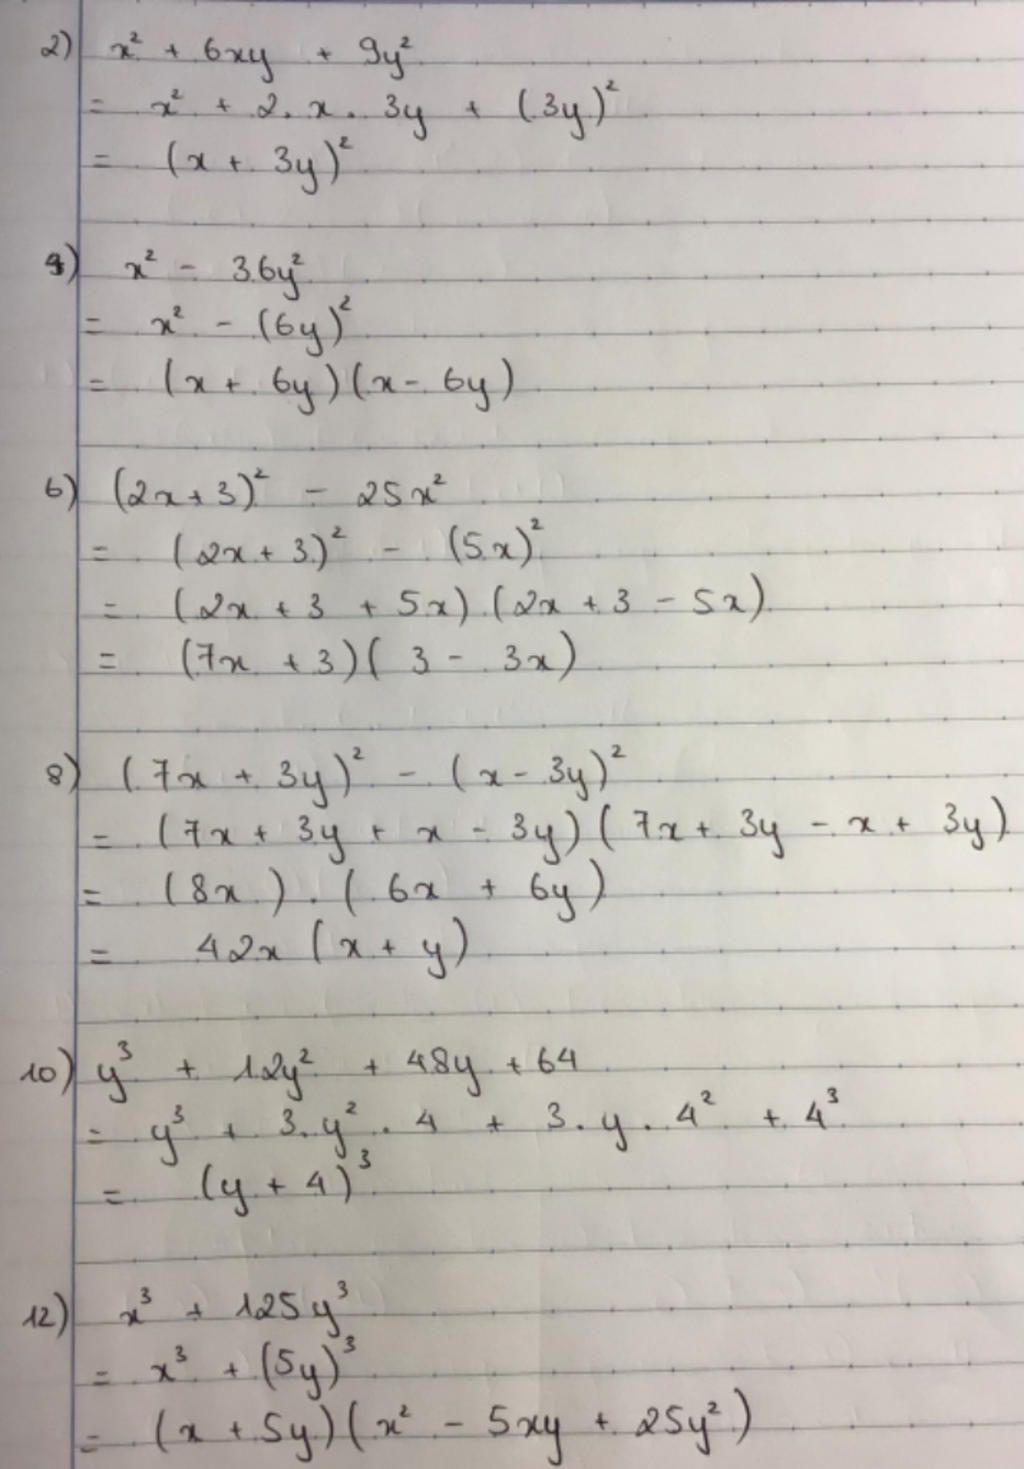 2) x² + 6xy + 9y²
= x² + 2. x. 3y + (3y)²
= (x + 3y)²
4) x² - 36y²
= x² - (6y)²
= (x + 6y)(x - 6y)
6) (2x+3)² - 25x²
= (2x + 3)² - (5x)²
= (2x + 3 + 5x).(2x + 3 - 5x)
= (7x + 3)(3 - 3x)
8) (7x + 3y)² - (x - 3y)²
= (7x + 3y + x - 3y)(7x + 3y - x + 3y)
= (8x).(6x + 6y)
= 42x (x + y)
10) y³ + 12y² + 48y + 64
= y³ + 3.y². 4 + 3. y. 4² + 4³
= (y + 4)³
12) x³ + 125y³
= x³ + (5y)³
= (x + 5y)(x² - 5xy + 25y²)